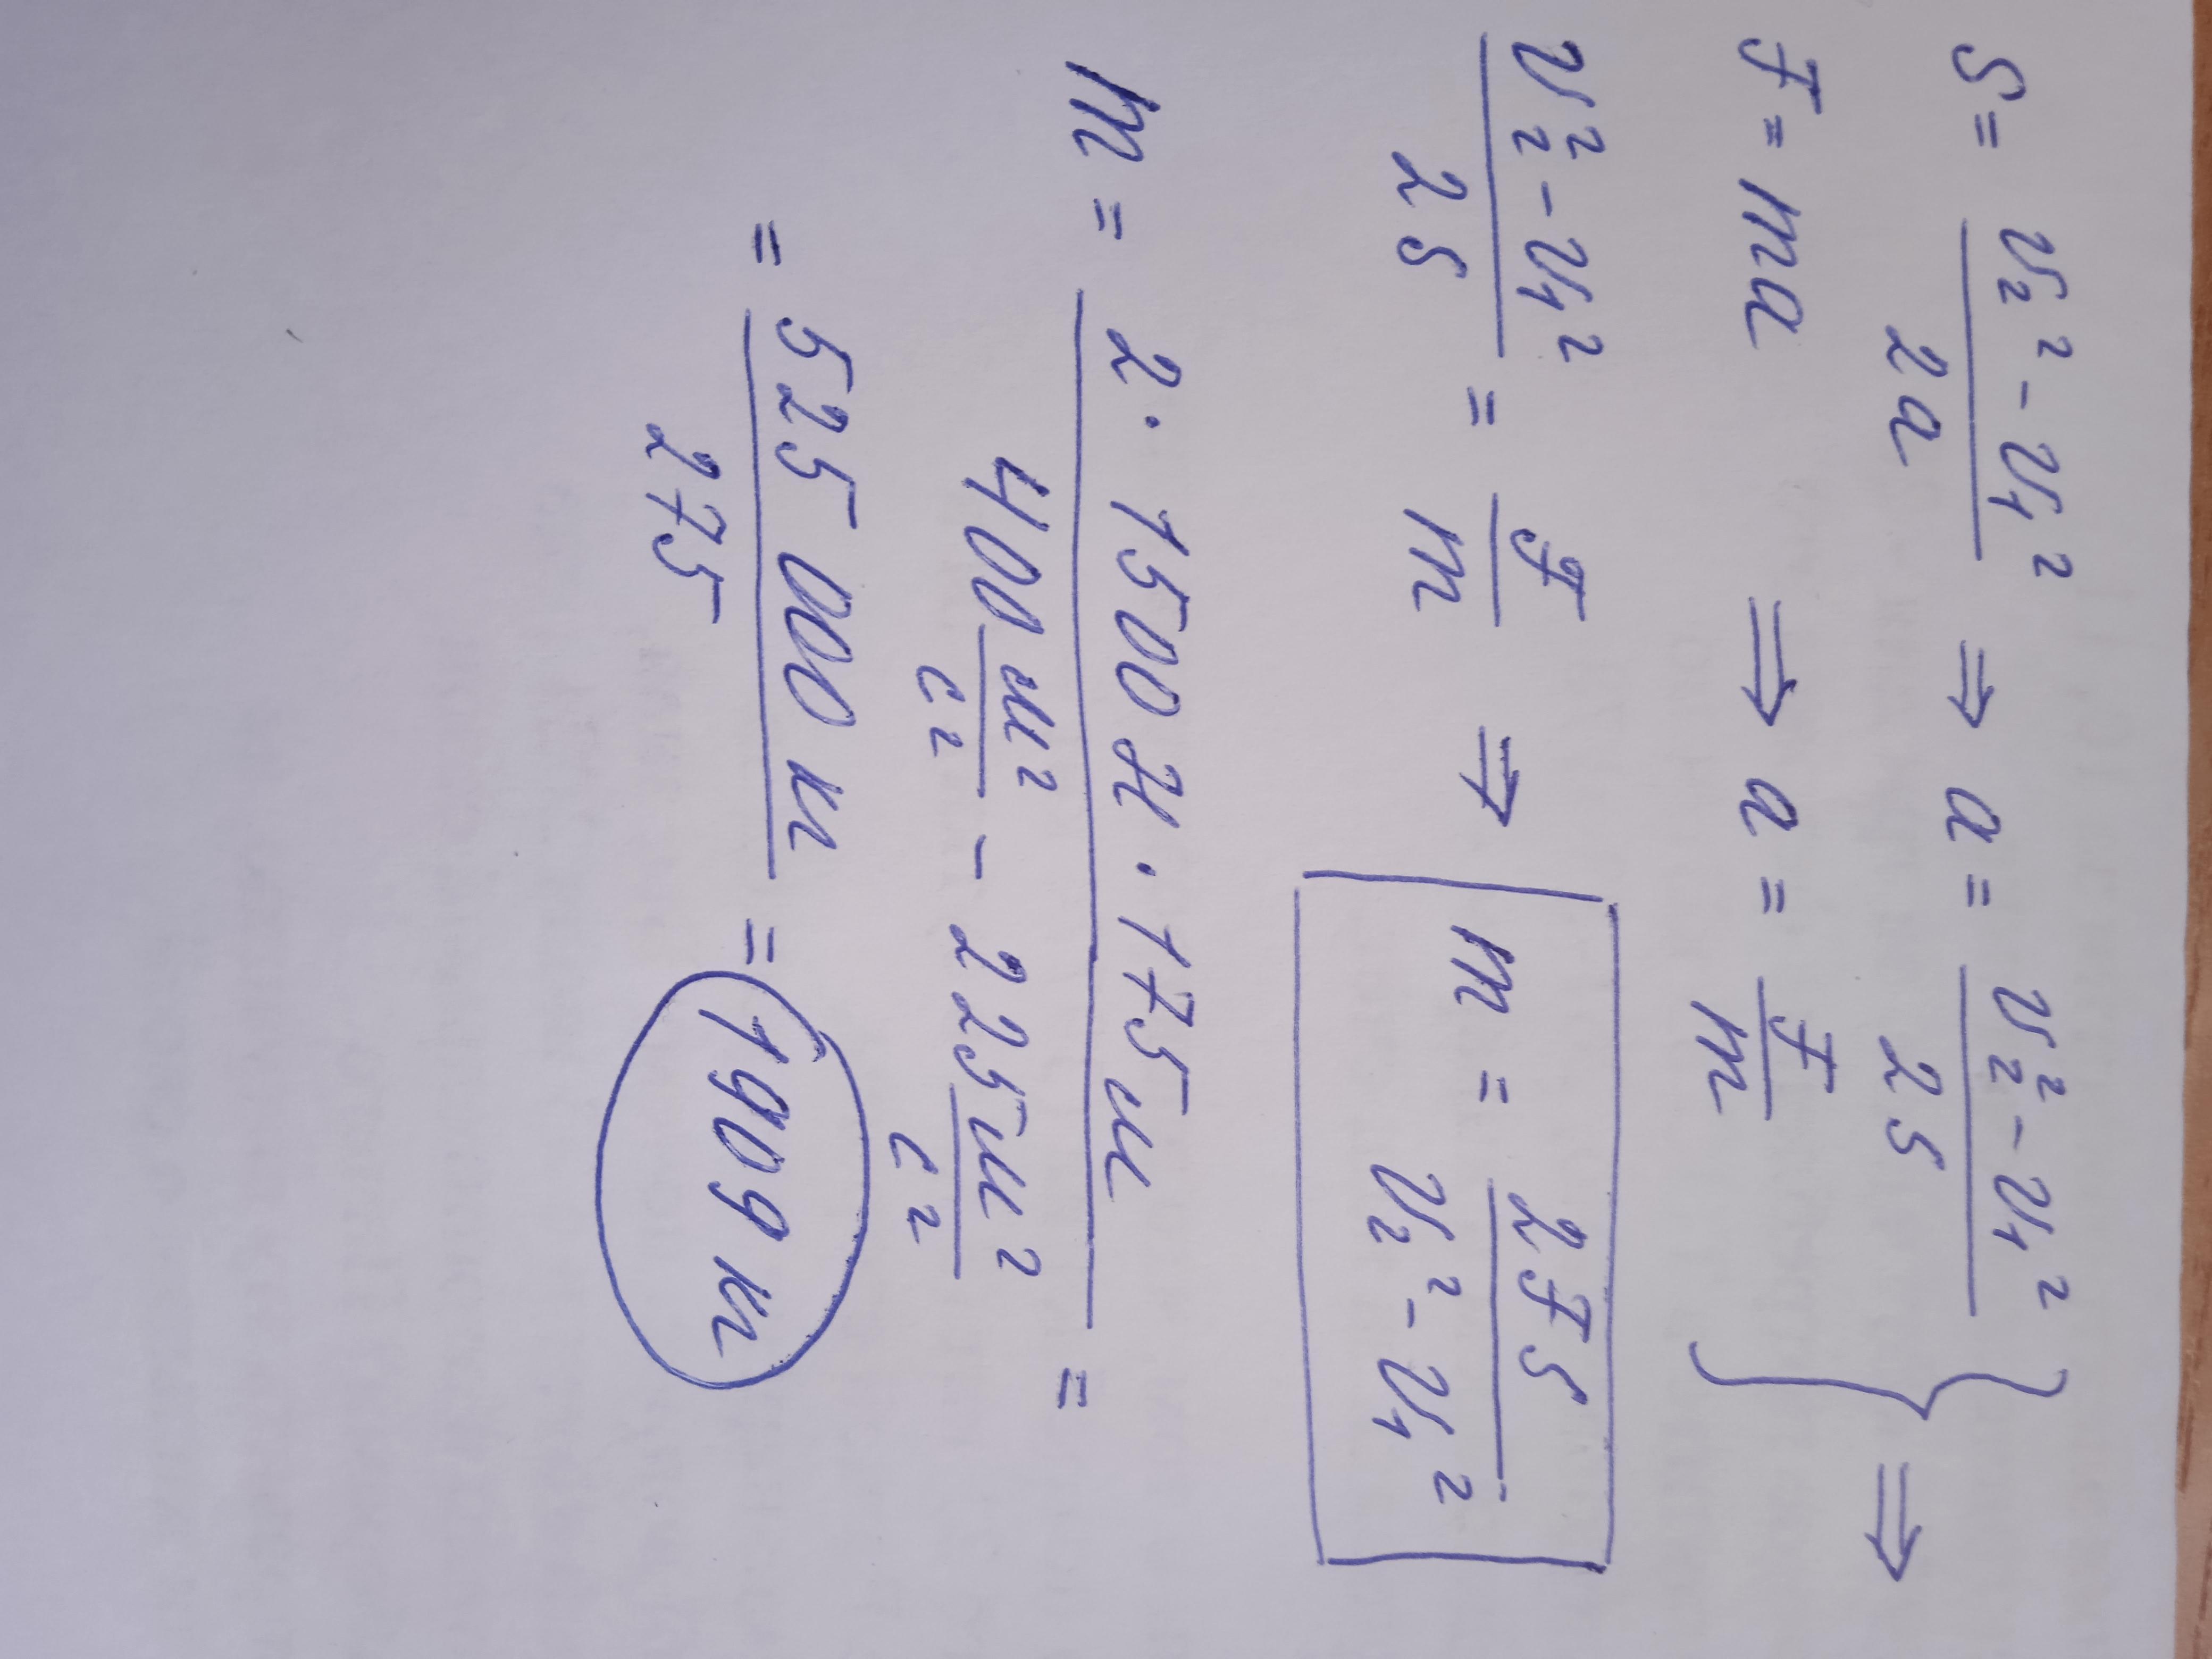 S = (υ₂² - υ₁²)/(2a) ⇒ a = (υ₂² - υ₁²)/(2S) } ⇒
F = ma ⇒ a = F/m
(υ₂² - υ₁²)/(2S) = F/m ⇒ m = (2FS)/(υ₂² - υ₁²)
m = (2 · 1500 Н · 175 м)/(400 м²/с² - 225 м²/с²) =
= (525 000 кг)/275 = 1909 кг